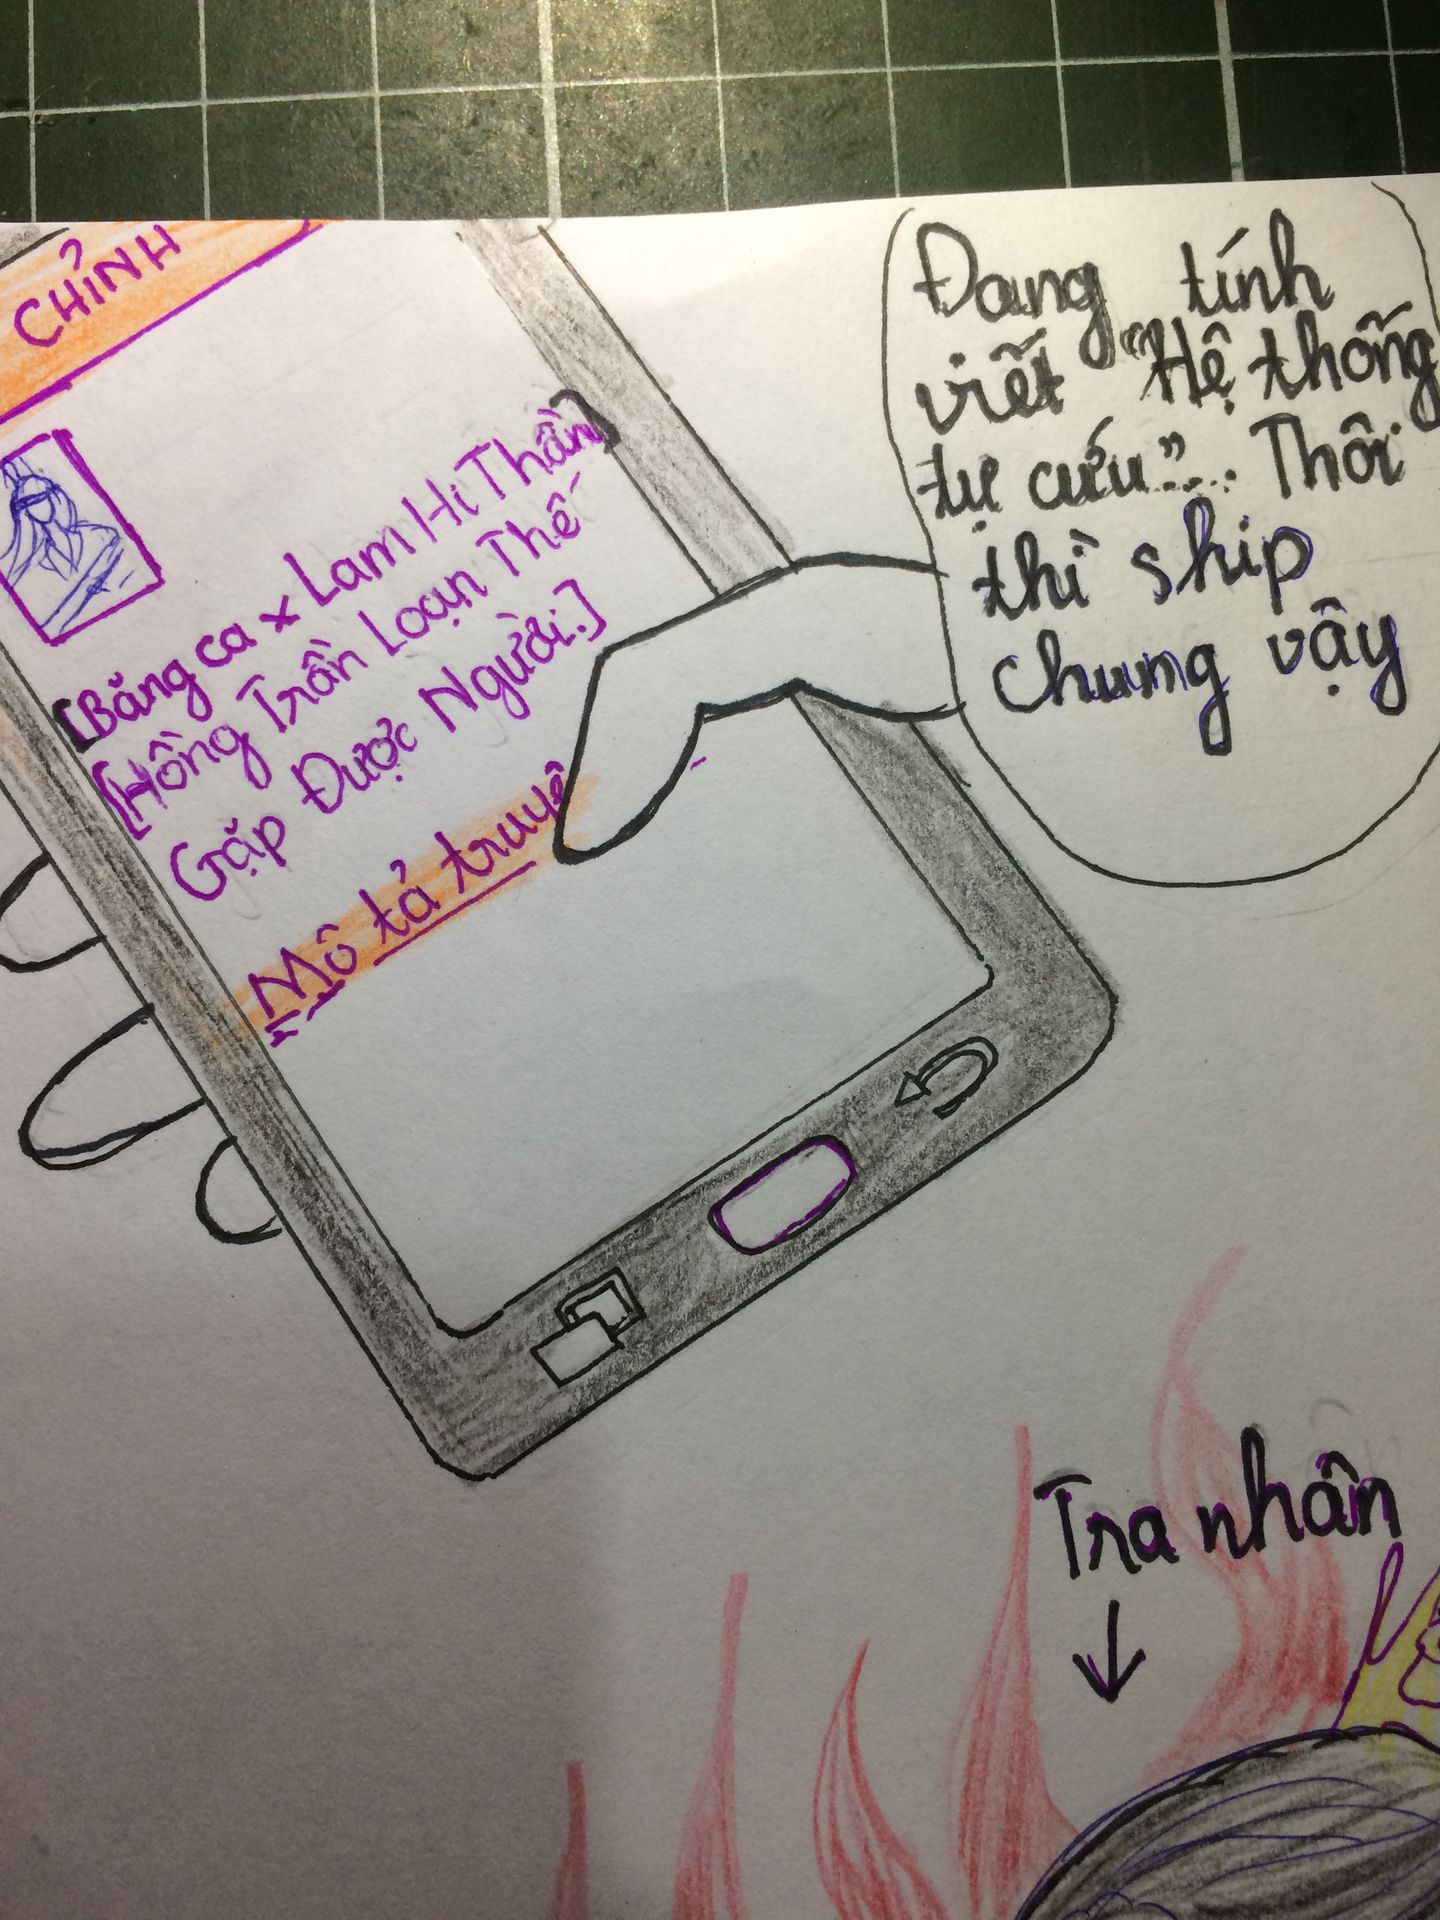 CHỈNH
[Băng ca x Lam Hi Thần]
[Hồng Trần Loạn Thế
Gặp Được Người.]
Mô tả truyê
Đang tính
viết "Hệ thống
tự cứu"... Thôi
thì ship
chung vậy
Tra nhân